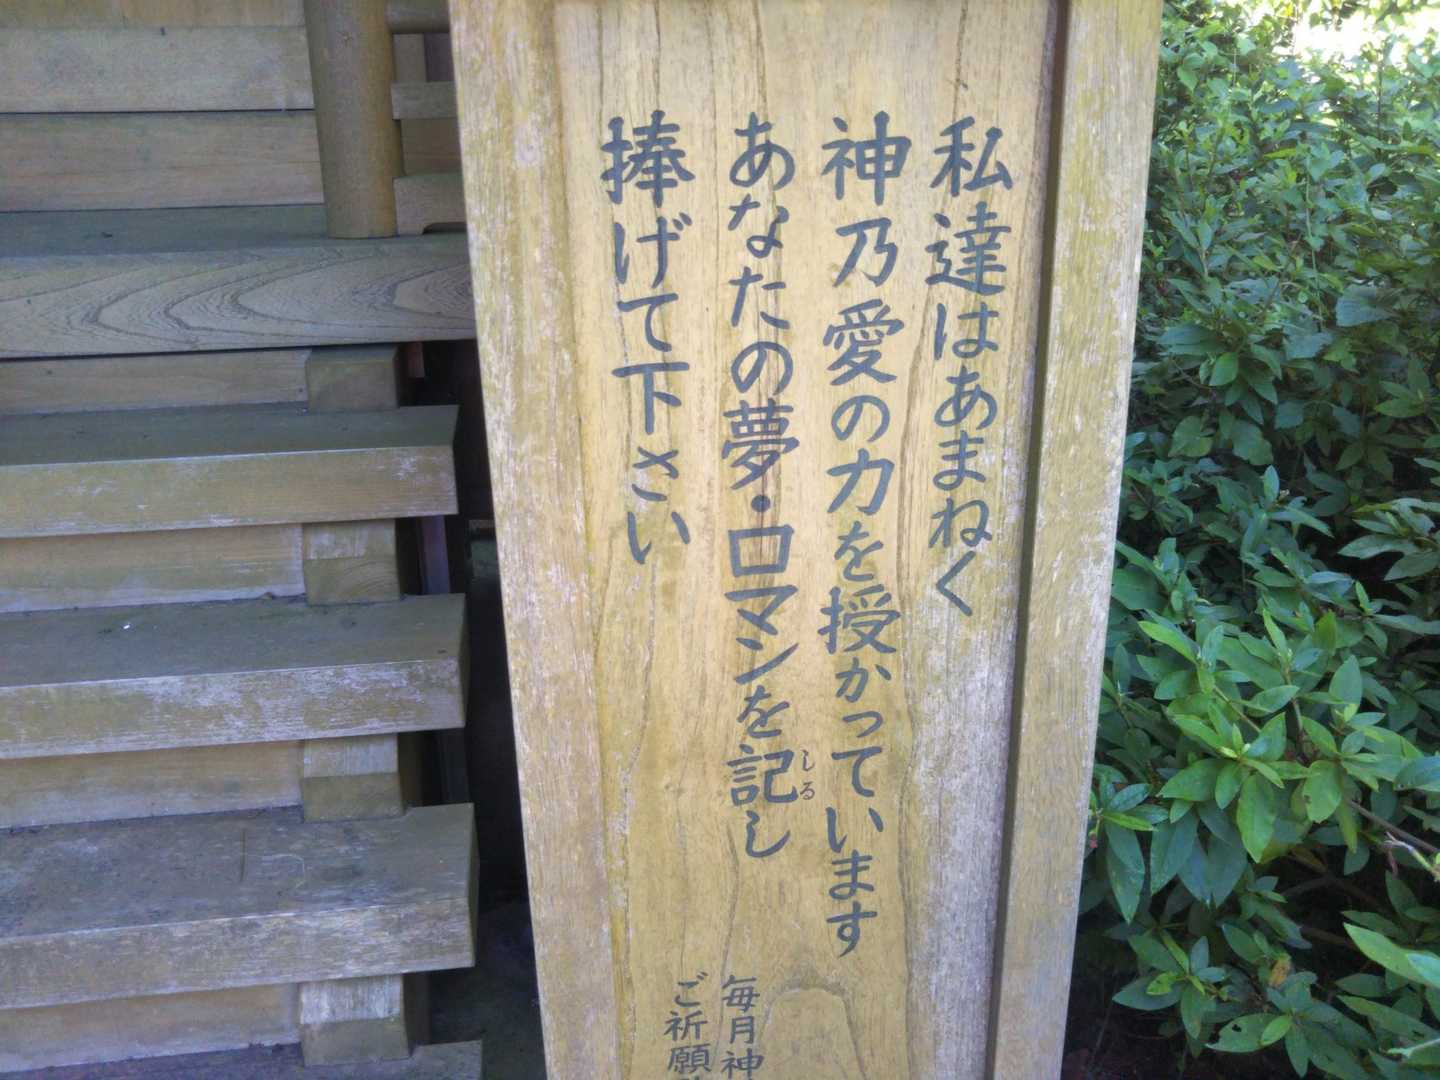 私達はあまねく
神乃愛の力を授かっています
あなたの夢・ロマンを記し
しる
捧げて下さい
毎月神
ご祈願